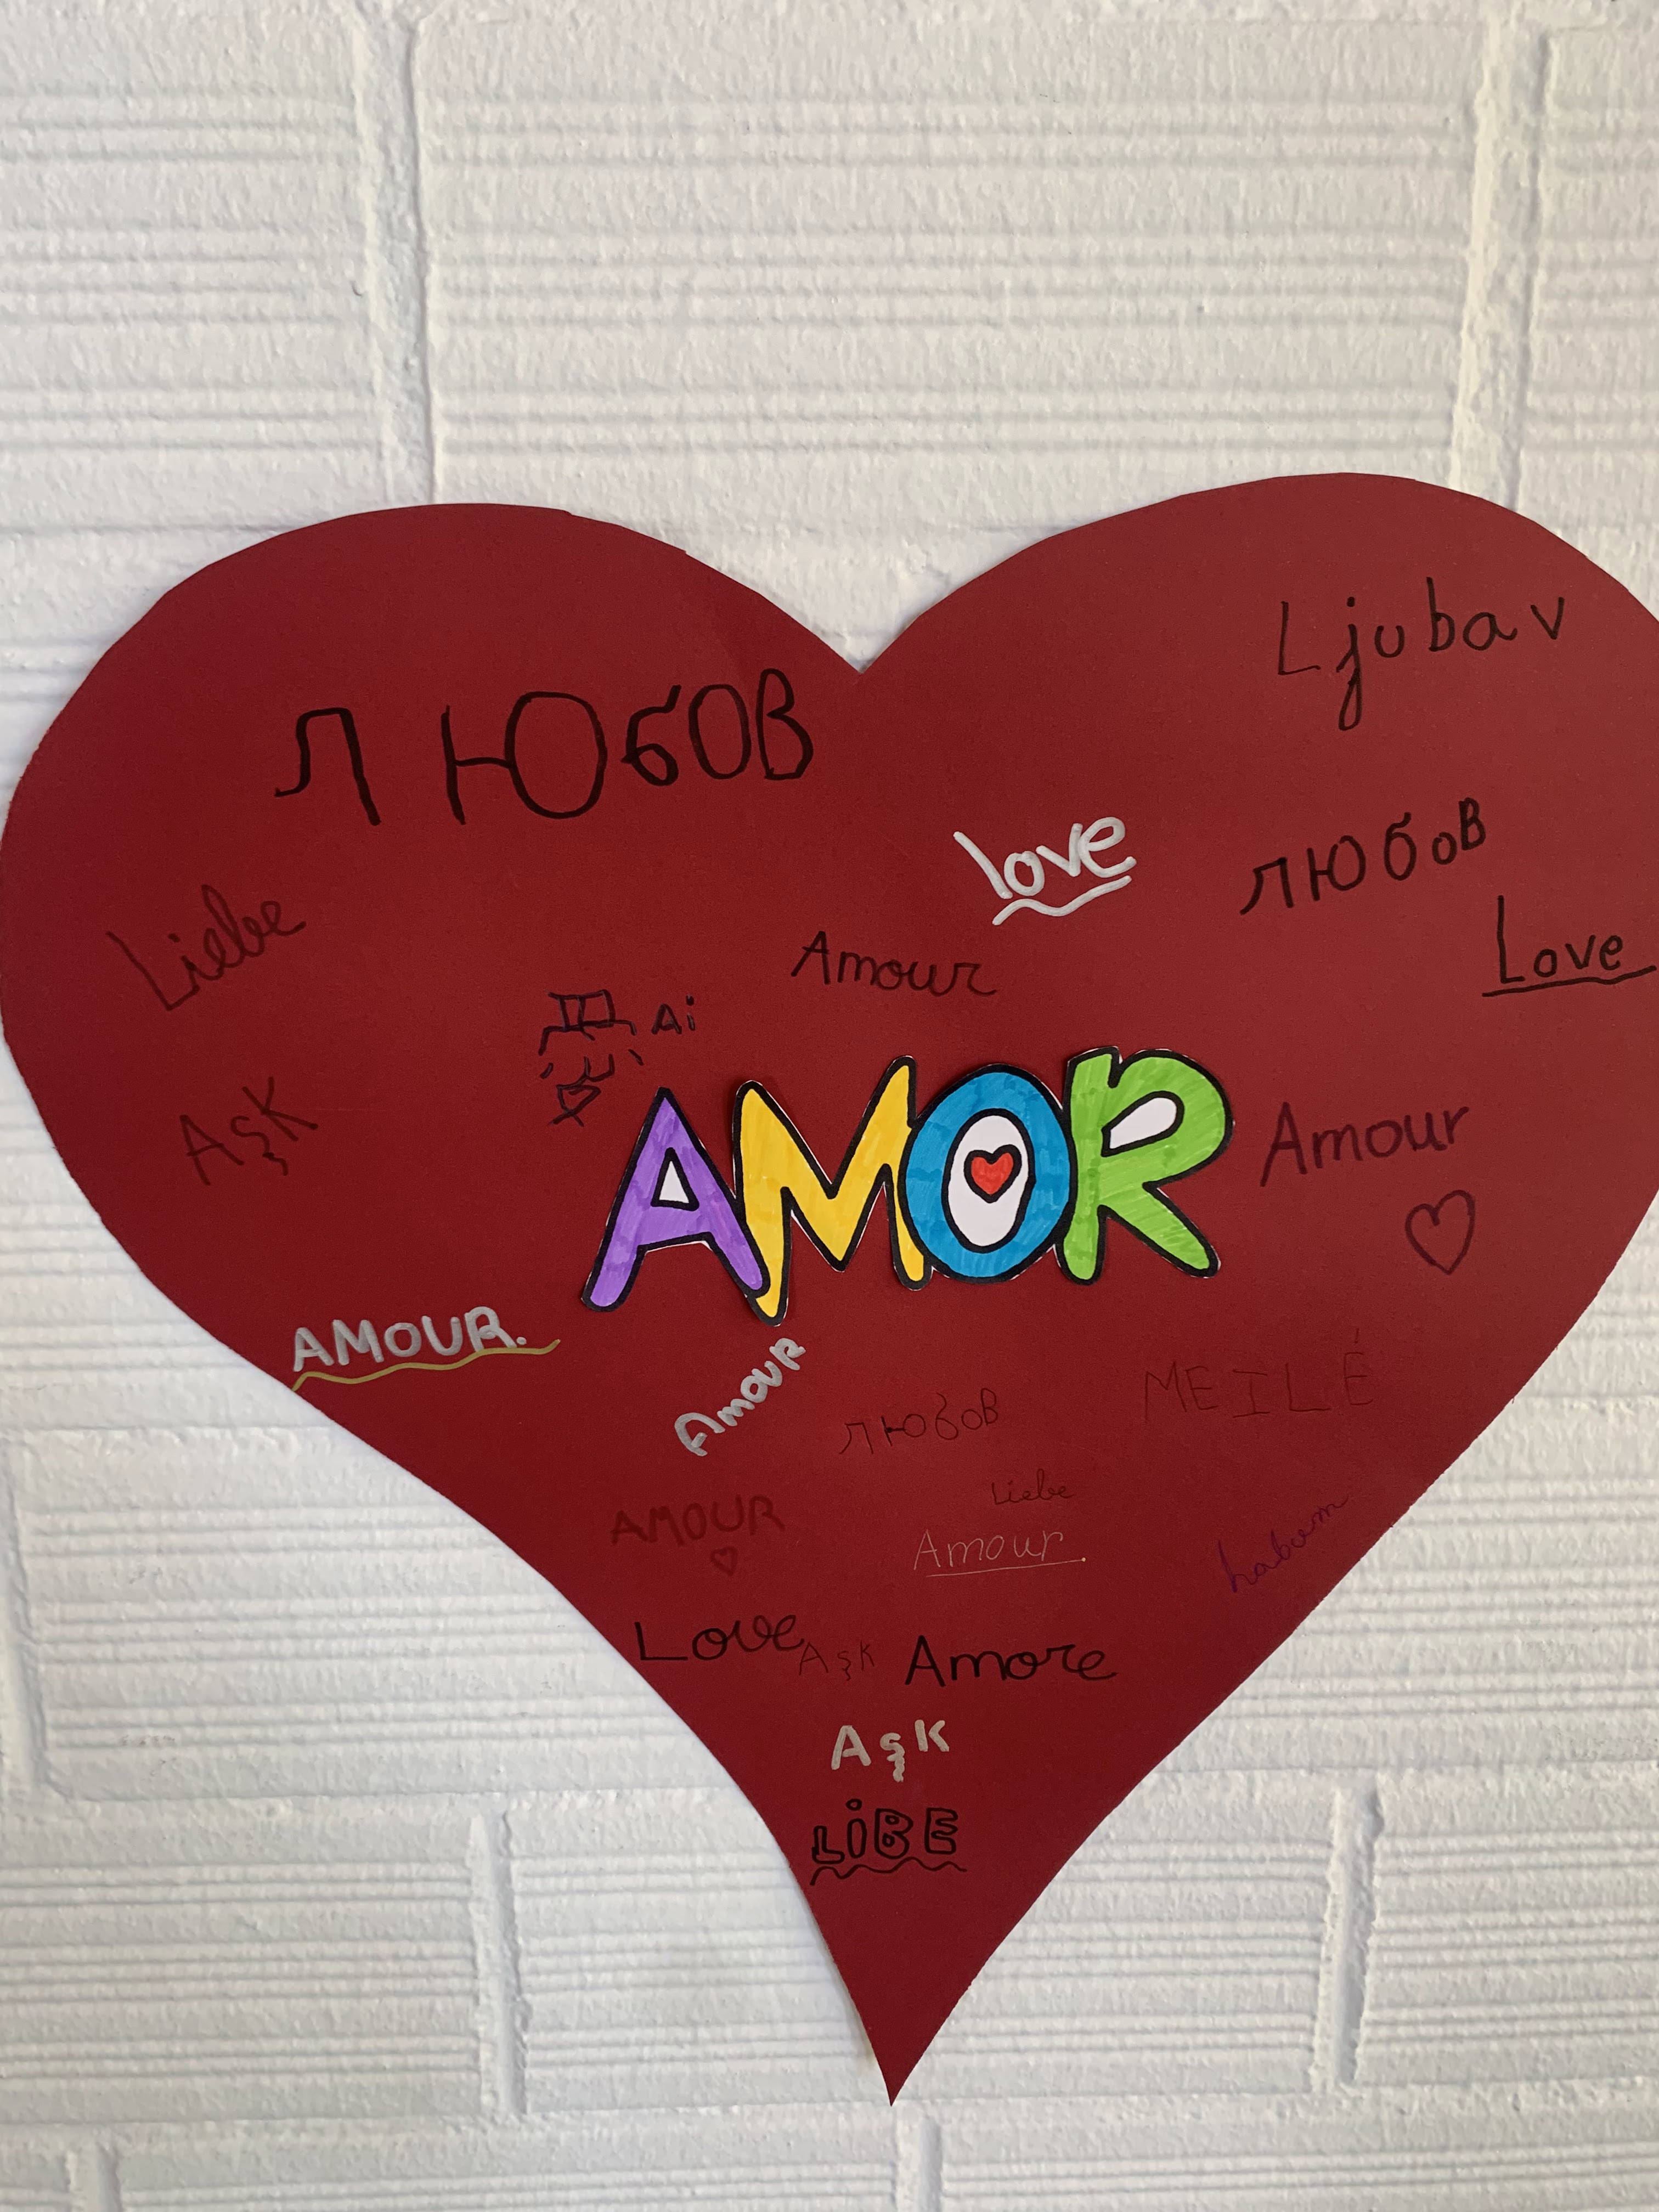 Ljubav
ЛЮбОВ
love
ЛЮбов
Liebe
Amour
Love
Ai
AşK
AMOR
Amour
AMOUR.
AMOUR
любов
MEILÉ
Liebe
AMOUR
Amour
Love
Aşk
Amore
Aşk
LİBE